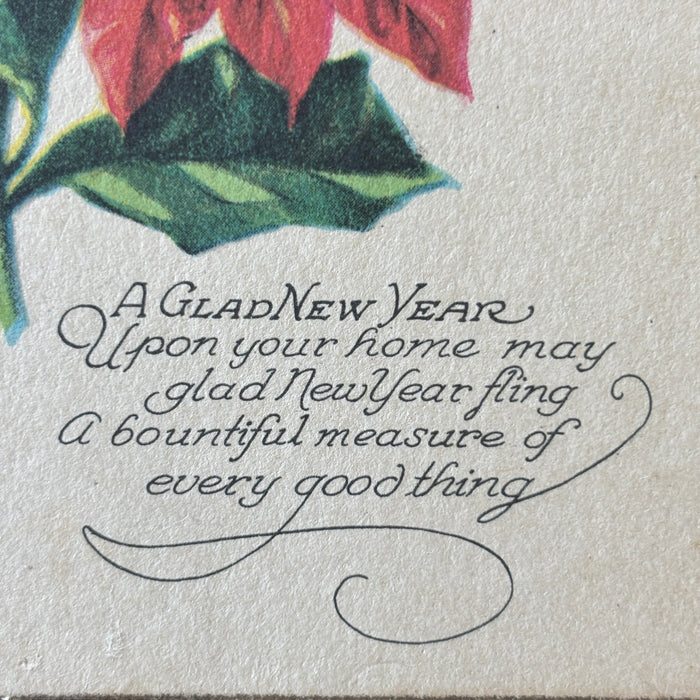 A GLAD NEW YEAR
Upon your home may
glad New Year fling
A bountiful measure of
every good thing